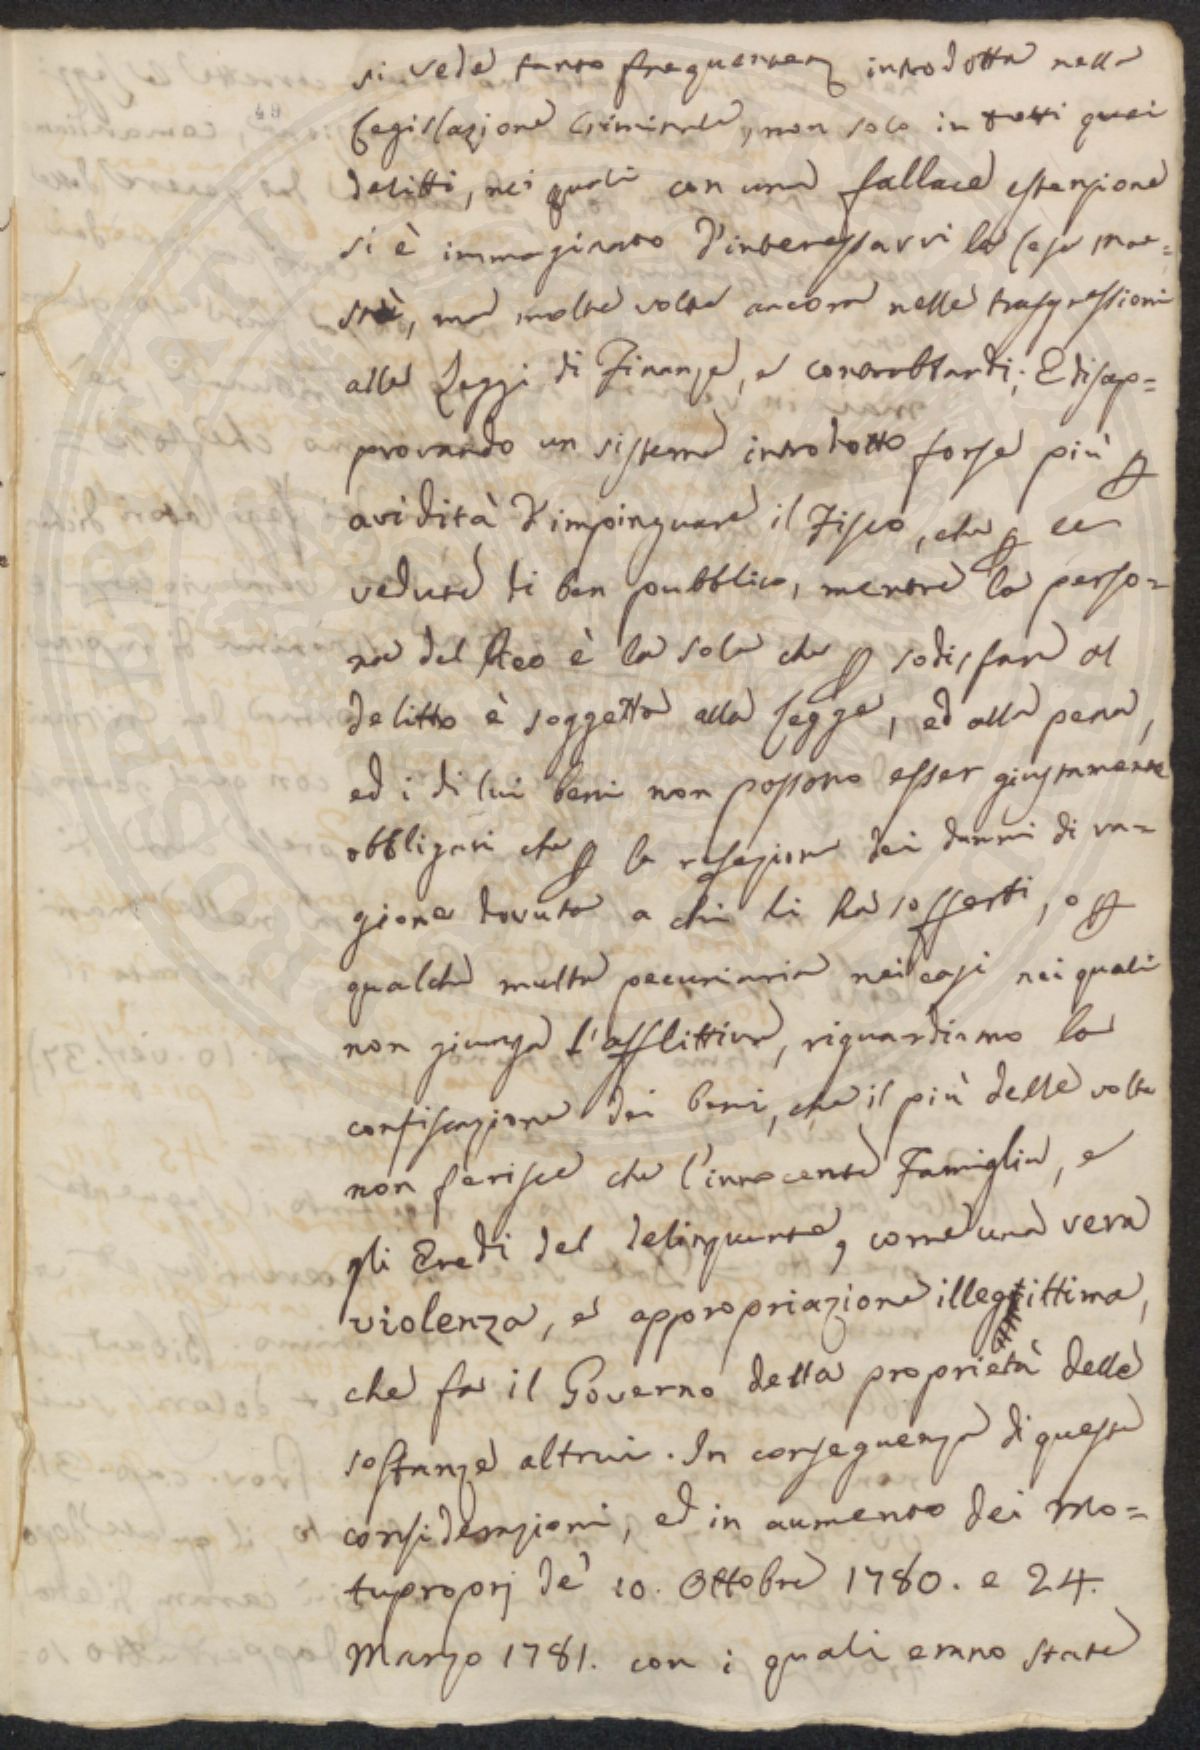 si vede tanto frequentem. introdotta nella
Legislazione Criminale, non solo in tutti quei
delitti, nei quali con una fallace estensione
si è immaginato d'interessarvi la lesa Mae=
stà, ma molte volte ancora nelle trasgressioni
alle Leggi di Finanze, e contrabbandi; E disap=
provando un sistema introdotto forse più p
avidità d'impinguare il Fisco, che p
vedute di ben pubblico, mentre la perso=
na del Reo è la sola che p sodisfare al
delitto è soggetta alla Legge, ed alla pena,
ed i di lui beni non possono esser giustamente
obbligati che p la refezione dei danni di ra=
gione dovuta a chi li ha sofferti, o p
qualche multa pecuniaria nei casi nei quali
non giunga l'afflittiva, riguardiamo la
confiscazione dei beni, che il più delle volte
non ferisce che l'innocente Famiglia, e
gli Eredi del delinquente, come una vera
violenza, e appropriazione illegittima,
che fa il Governo della proprietà delle
sostanze altrui. In conseguenza di queste
considerazioni, ed in aumento dei Mo=
tuproprj de' 10. Ottobre 1780. e 24.
Marzo 1781. con i quali erano state